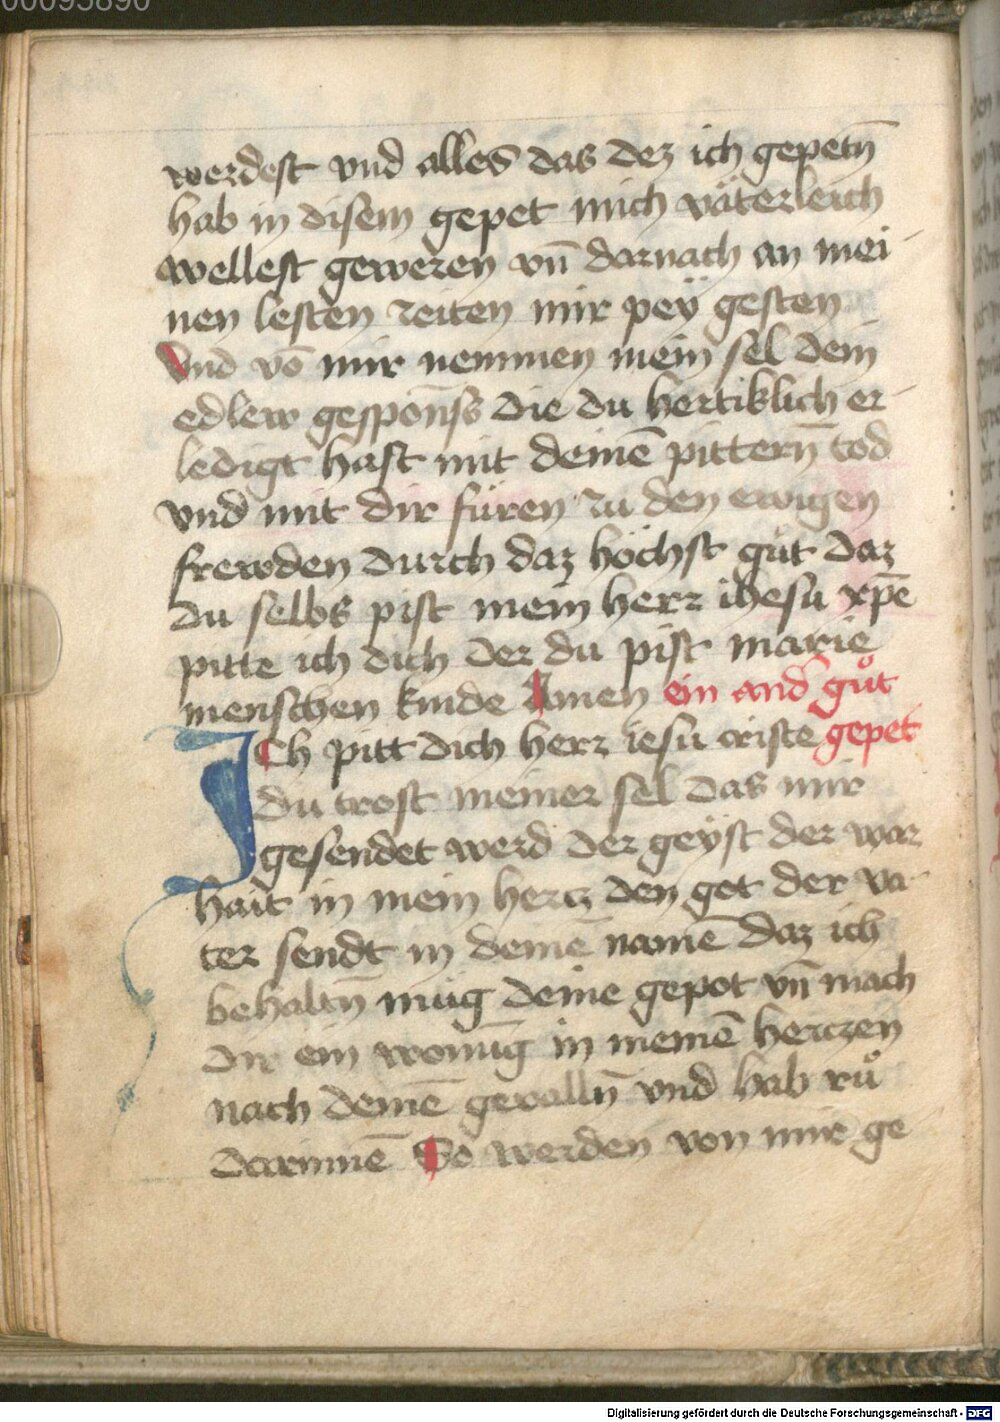 00095890
werdest vnd alles das dez ich gepetn̄
hab in disem gepet mich väterleich
wellest geweren vn̄ darnach an mei-
nen lesten zeiten mir peÿ gesten
Vnd vō mir nemmen mein sel dein
edlew gespōnss die du hertiklich er-
ledigt hast mit deinē pittern̄ tod
vnd mit dir füren zu den ewigen
frewden durch daz höchst gůt daz
du selbs pist mein herr ihesu xp̄e
pitte ich dich der du pist marie
menschen kinde Amen ein and̓ gůt
Ich pitt dich herr iesu criste gepet
du trost meiner sel das mir
gesendet werd der geÿst der war
hait in mein hertz den got der va-
ter sendt in deinē namē daz ich
behaltn̄ müg deine gepot vn̄ mach
dir ein wonūg in meinē hertzen
nach deinē gevalln̄ vnd hab rů
darinnē So werden von mir ge
Digitalisierung gefördert durch die Deutsche Forschungsgemeinschaft - DFG